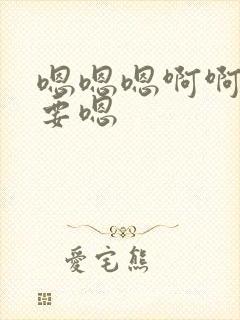 嗯嗯嗯啊啊
要嗯
愛宅熊